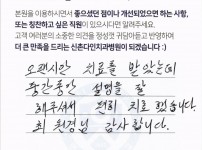 본원을 이용하시면서 좋으셨던 점이나 개선되었으면 하는 사항,
또는 칭찬하고 싶은 직원이 있으시다면 알려주세요.
고객 여러분의 소중한 의견을 정성껏 귀담아듣고 반영하여
더 큰 만족을 드리는 신촌다인치과병원이 되겠습니다 :)
오랜시간 치료를 받았는데
중간중간 설명을 잘
해주셔서 편히 치료 했습니다.
최 원경님 감사합니다.